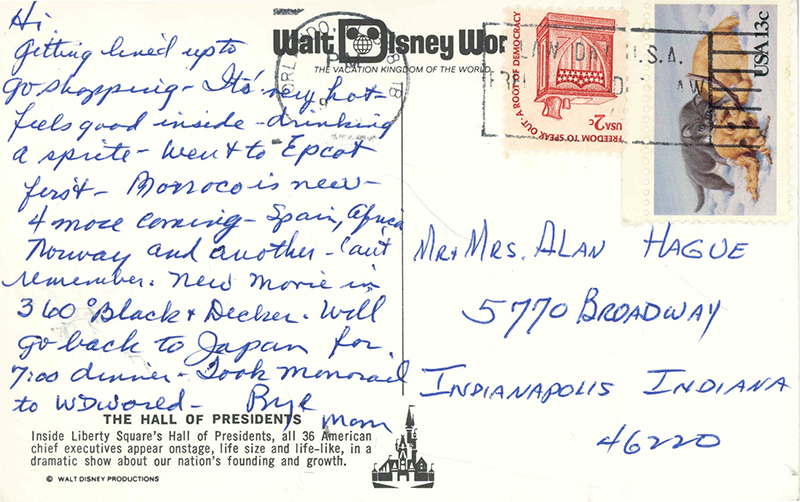 Hi
Getting lined up to
go shopping - It's very hot -
feels good inside - drinking
a sprite - Went to Epcot
first - Morroco is new -
4 more coming - Spain, Africa
Norway and another - can't
remember. New Movie in
360° Black & Decker. Will
go back to Japan for
7:00 dinner - Took Monorail
to WDWorld - Bye
Mom
THE HALL OF PRESIDENTS
Inside Liberty Square's Hall of Presidents, all 36 American
chief executives appear onstage, life size and life-like, in a
dramatic show about our nation's founding and growth.
© WALT DISNEY PRODUCTIONS
Walt Disney Wor
THE VACATION KINGDOM OF THE WORLD
PM
LAW DAY U.S.A.
LAW
FREEDOM TO SPEAK OUT - A ROOT OF DEMOCRACY
USA 2c
USA 13c
Mr & Mrs. Alan Hague
5770 Broadway
Indianapolis Indiana
46220